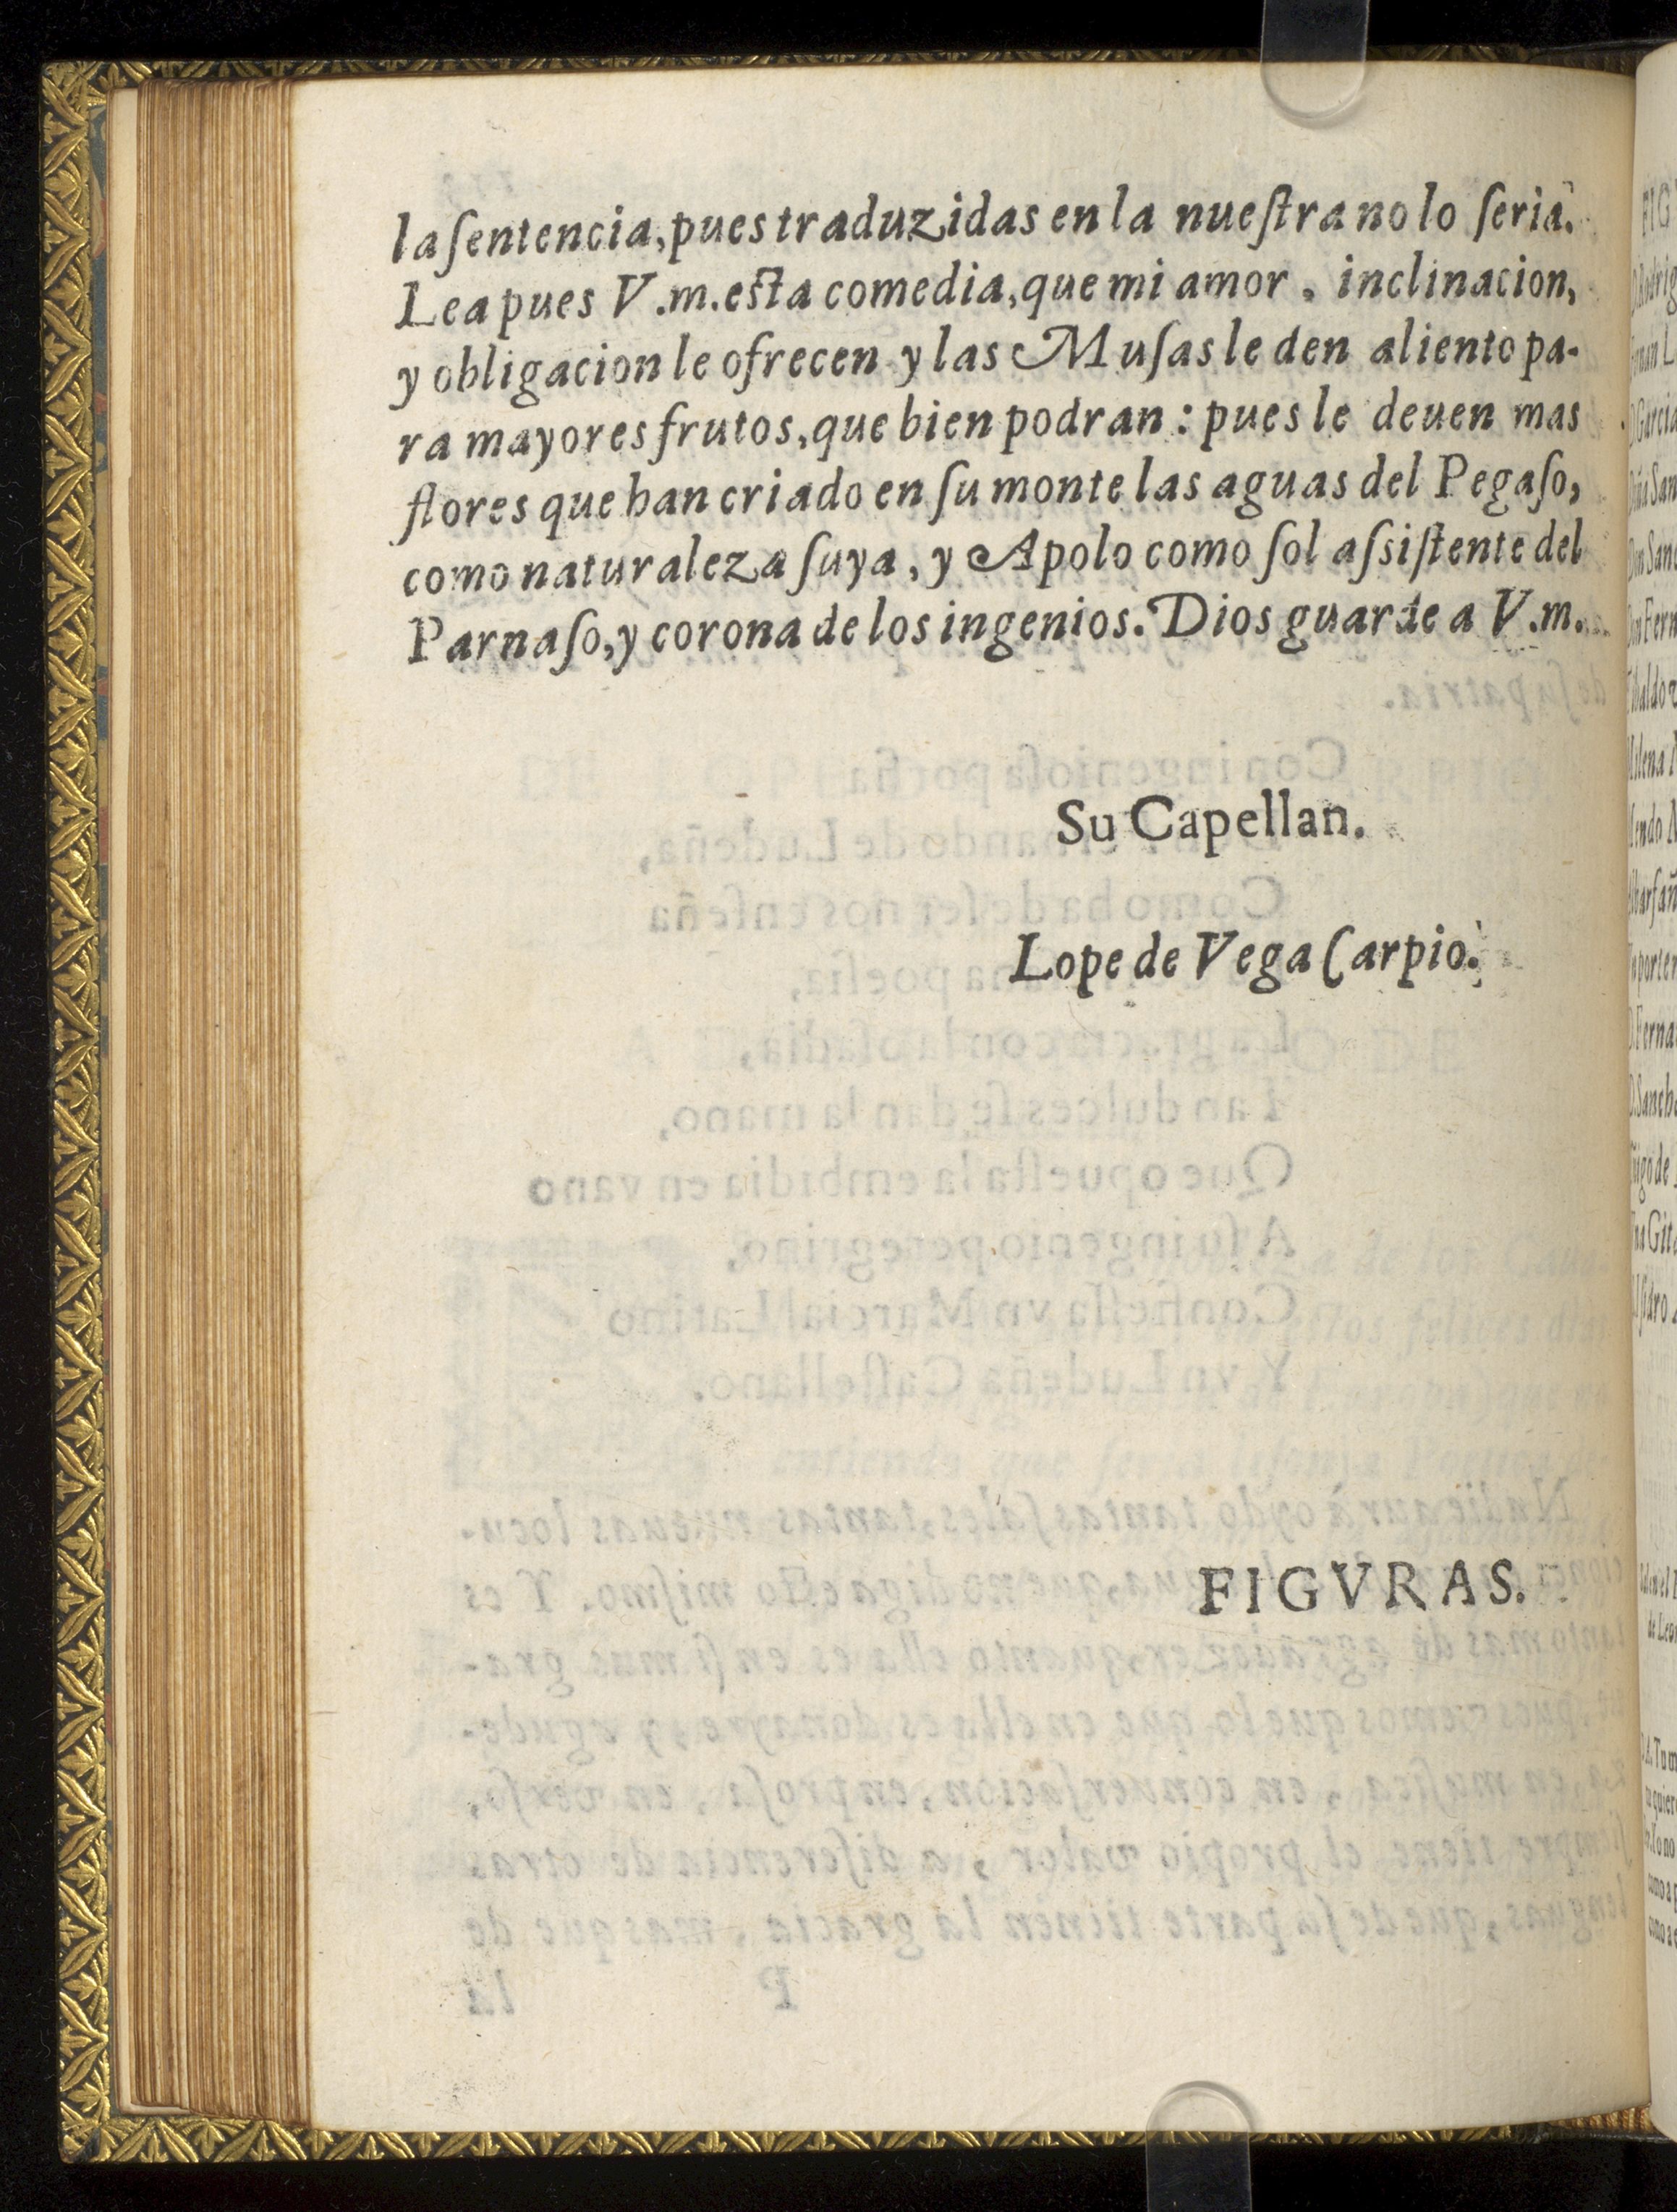 la ſentencia, pues traduzidas en la nueſtra no lo ſeria.
Lea pues V.m. eſta comedia, que mi amor, inclinacion,
y obligacion le ofrecen y las Muſas le den aliento pa-
ra mayores frutos, que bien podran: pues le deuen mas
flores que han criado en ſu monte las aguas del Pegaſo,
como naturaleza ſuya, y Apolo como ſol aſsiſtente del
Parnaſo, y corona de los ingenios. Dios guarde a V.m.
Su Capellan.
Lope de Vega Carpio.
FIGVRAS.